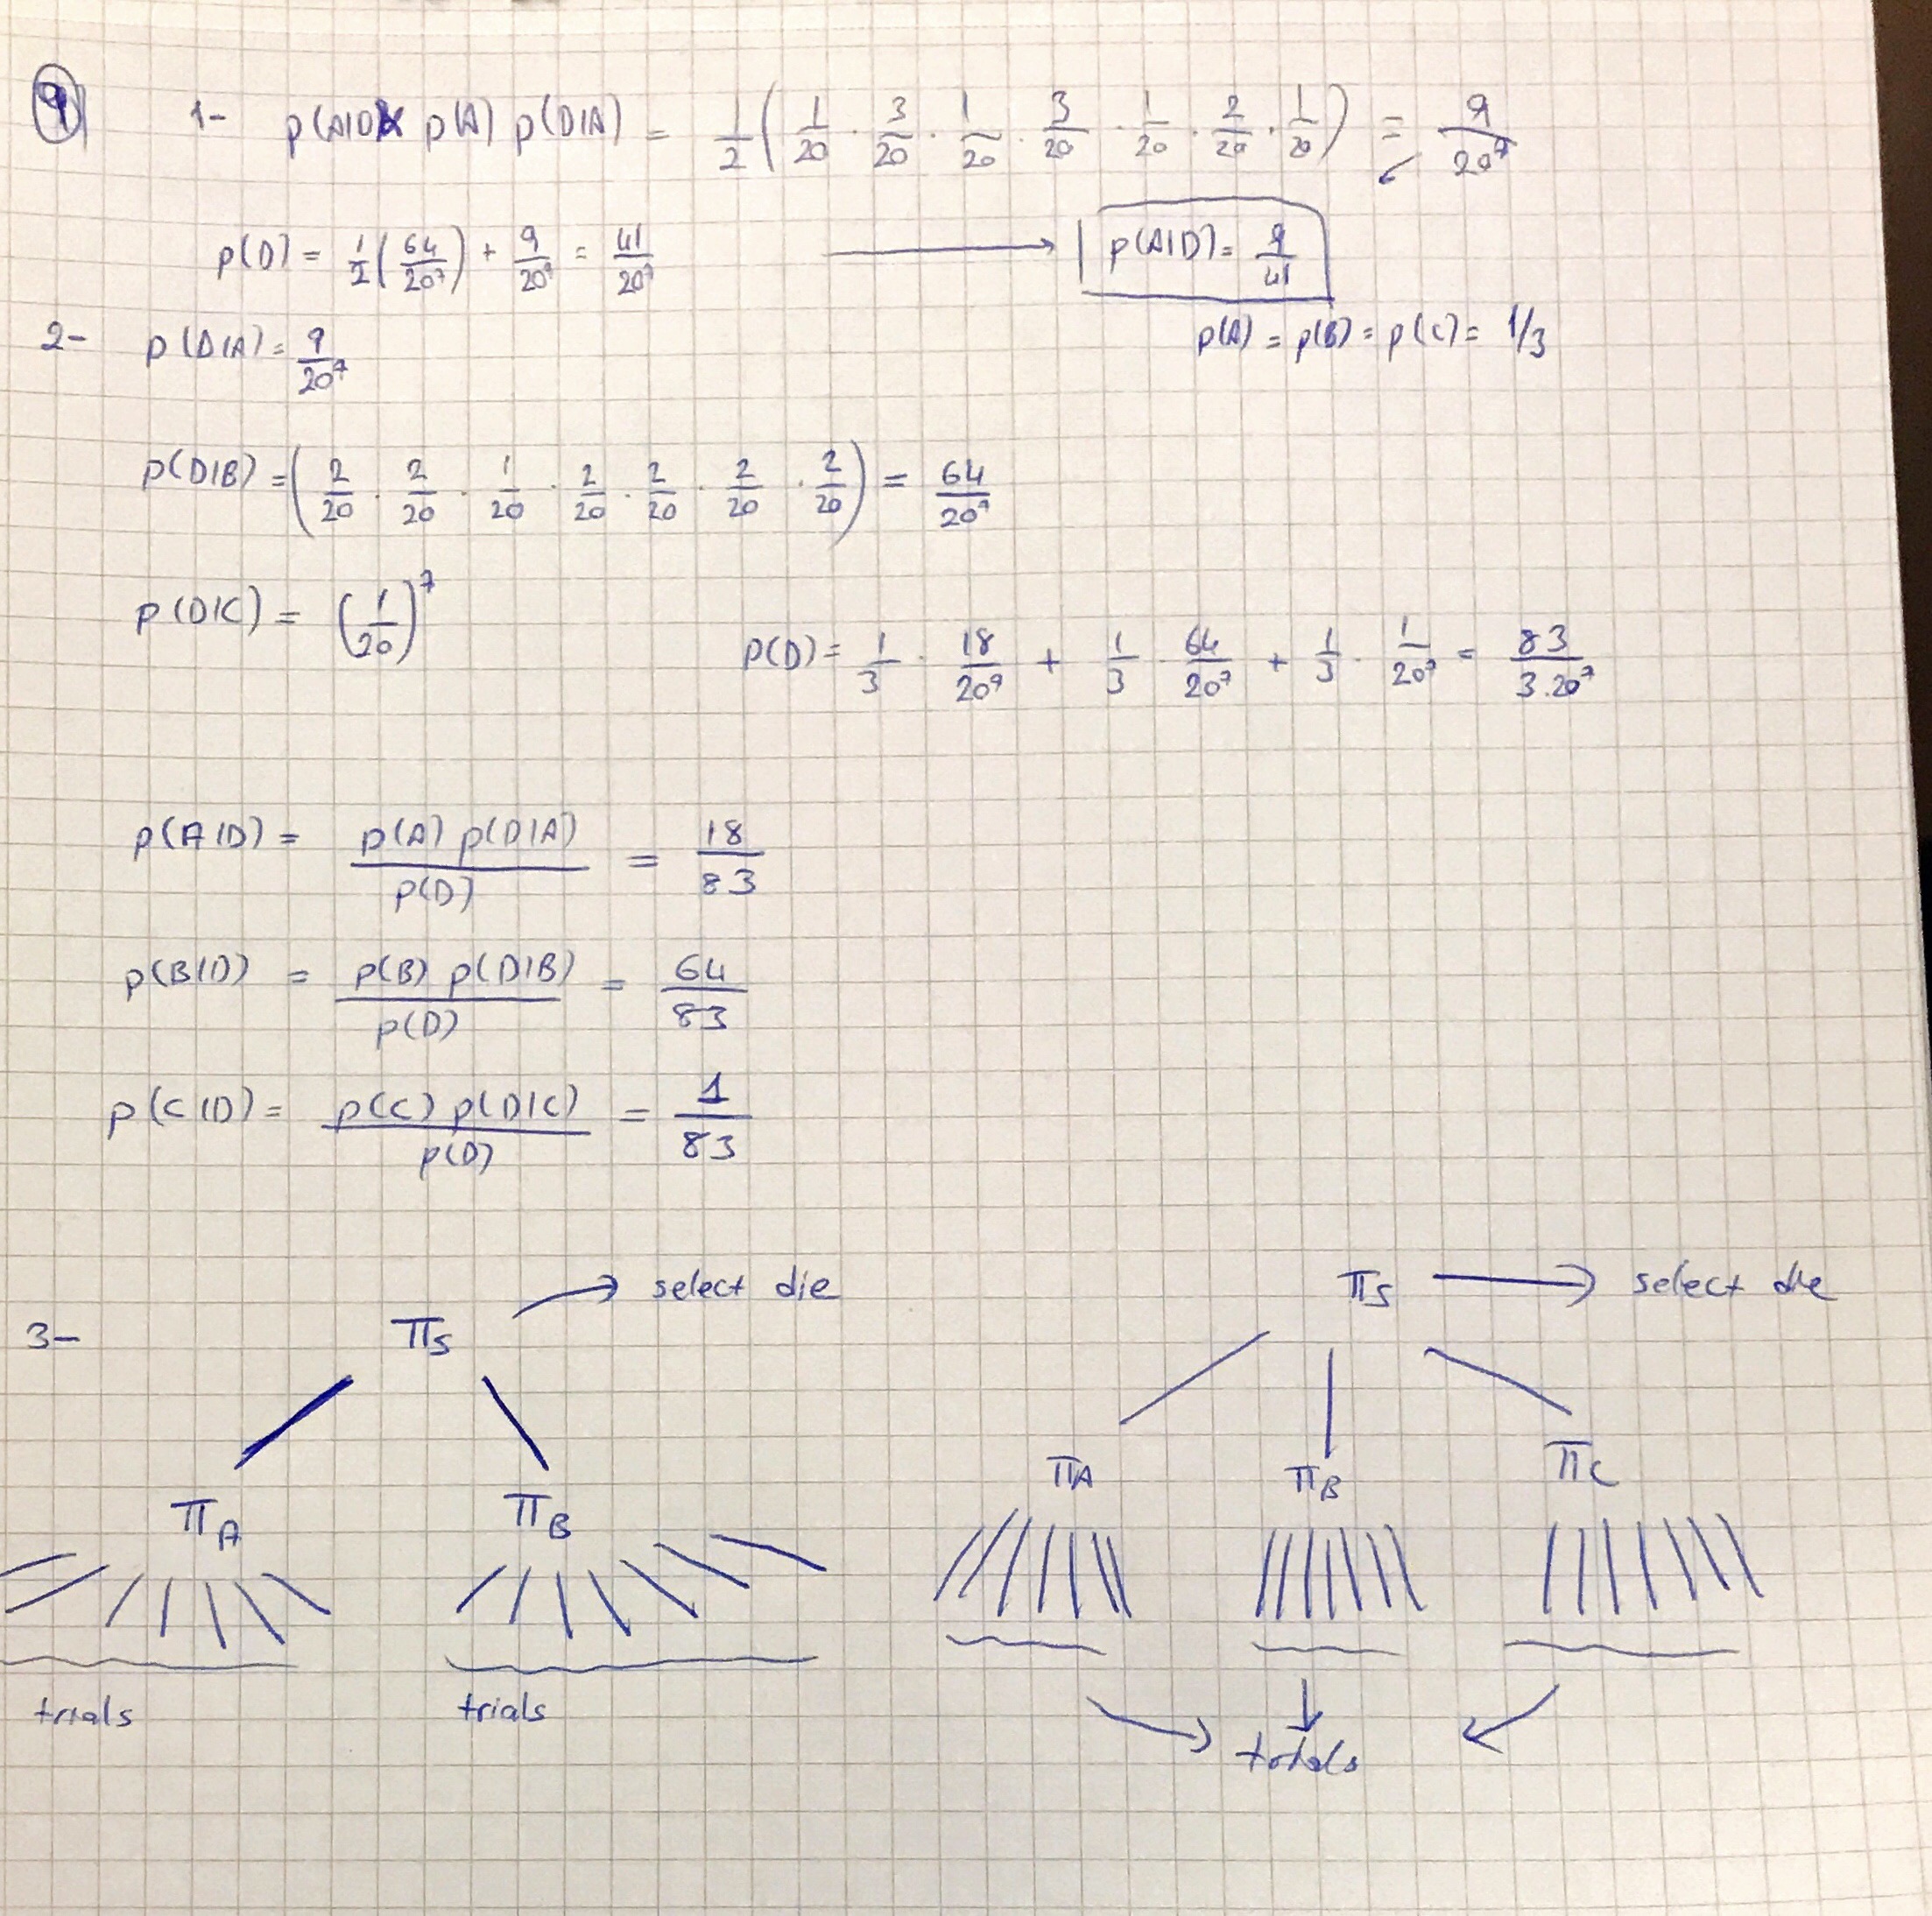 9
1- p(A|D) p(A) p(D|A) = 1/2 ( 1/20 · 3/20 · 1/20 · 3/20 · 1/20 · 2/20 · 1/20 ) = 9/20^7
p(D) = 1/2 ( 64/20^7 ) + 9/20^7 = 41/20^7 → p(A|D) = 9/41
p(A) = p(B) = p(C) = 1/3
2- p(D|A) = 9/20^7
p(D|B) = ( 2/20 · 2/20 · 1/20 · 2/20 · 2/20 · 2/20 · 2/20 ) = 64/20^7
p(D|C) = (1/20)^7
p(D) = 1/3 · 18/20^9 + 1/3 · 64/20^7 + 1/3 · 1/20^7 = 83/3.20^7
p(A|D) = p(A) p(D|A) / p(D) = 18/83
p(B|D) = p(B) p(D|B) / p(D) = 64/83
p(C|D) = p(C) p(D|C) / p(D) = 1/83
3- Πs → select die
ΠA ΠB
trials trials
Πs → select die
ΠA ΠB Πc